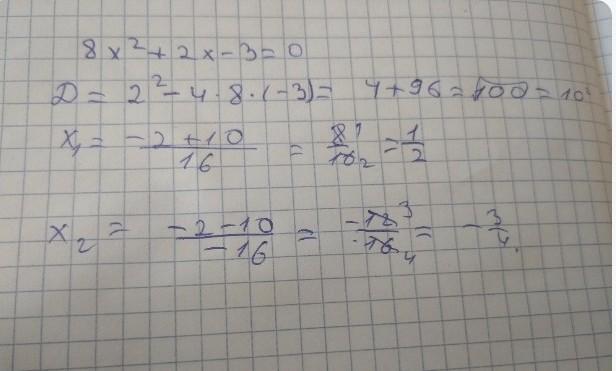 8x² + 2x - 3 = 0
D = 2² - 4 · 8 · (-3) = 4 + 96 = √100 = 10
x₁ = (-2 + 10)/16 = 8¹/16₂ = 1/2
x₂ = (-2 - 10)/-16 = -12³/16₄ = -3/4.